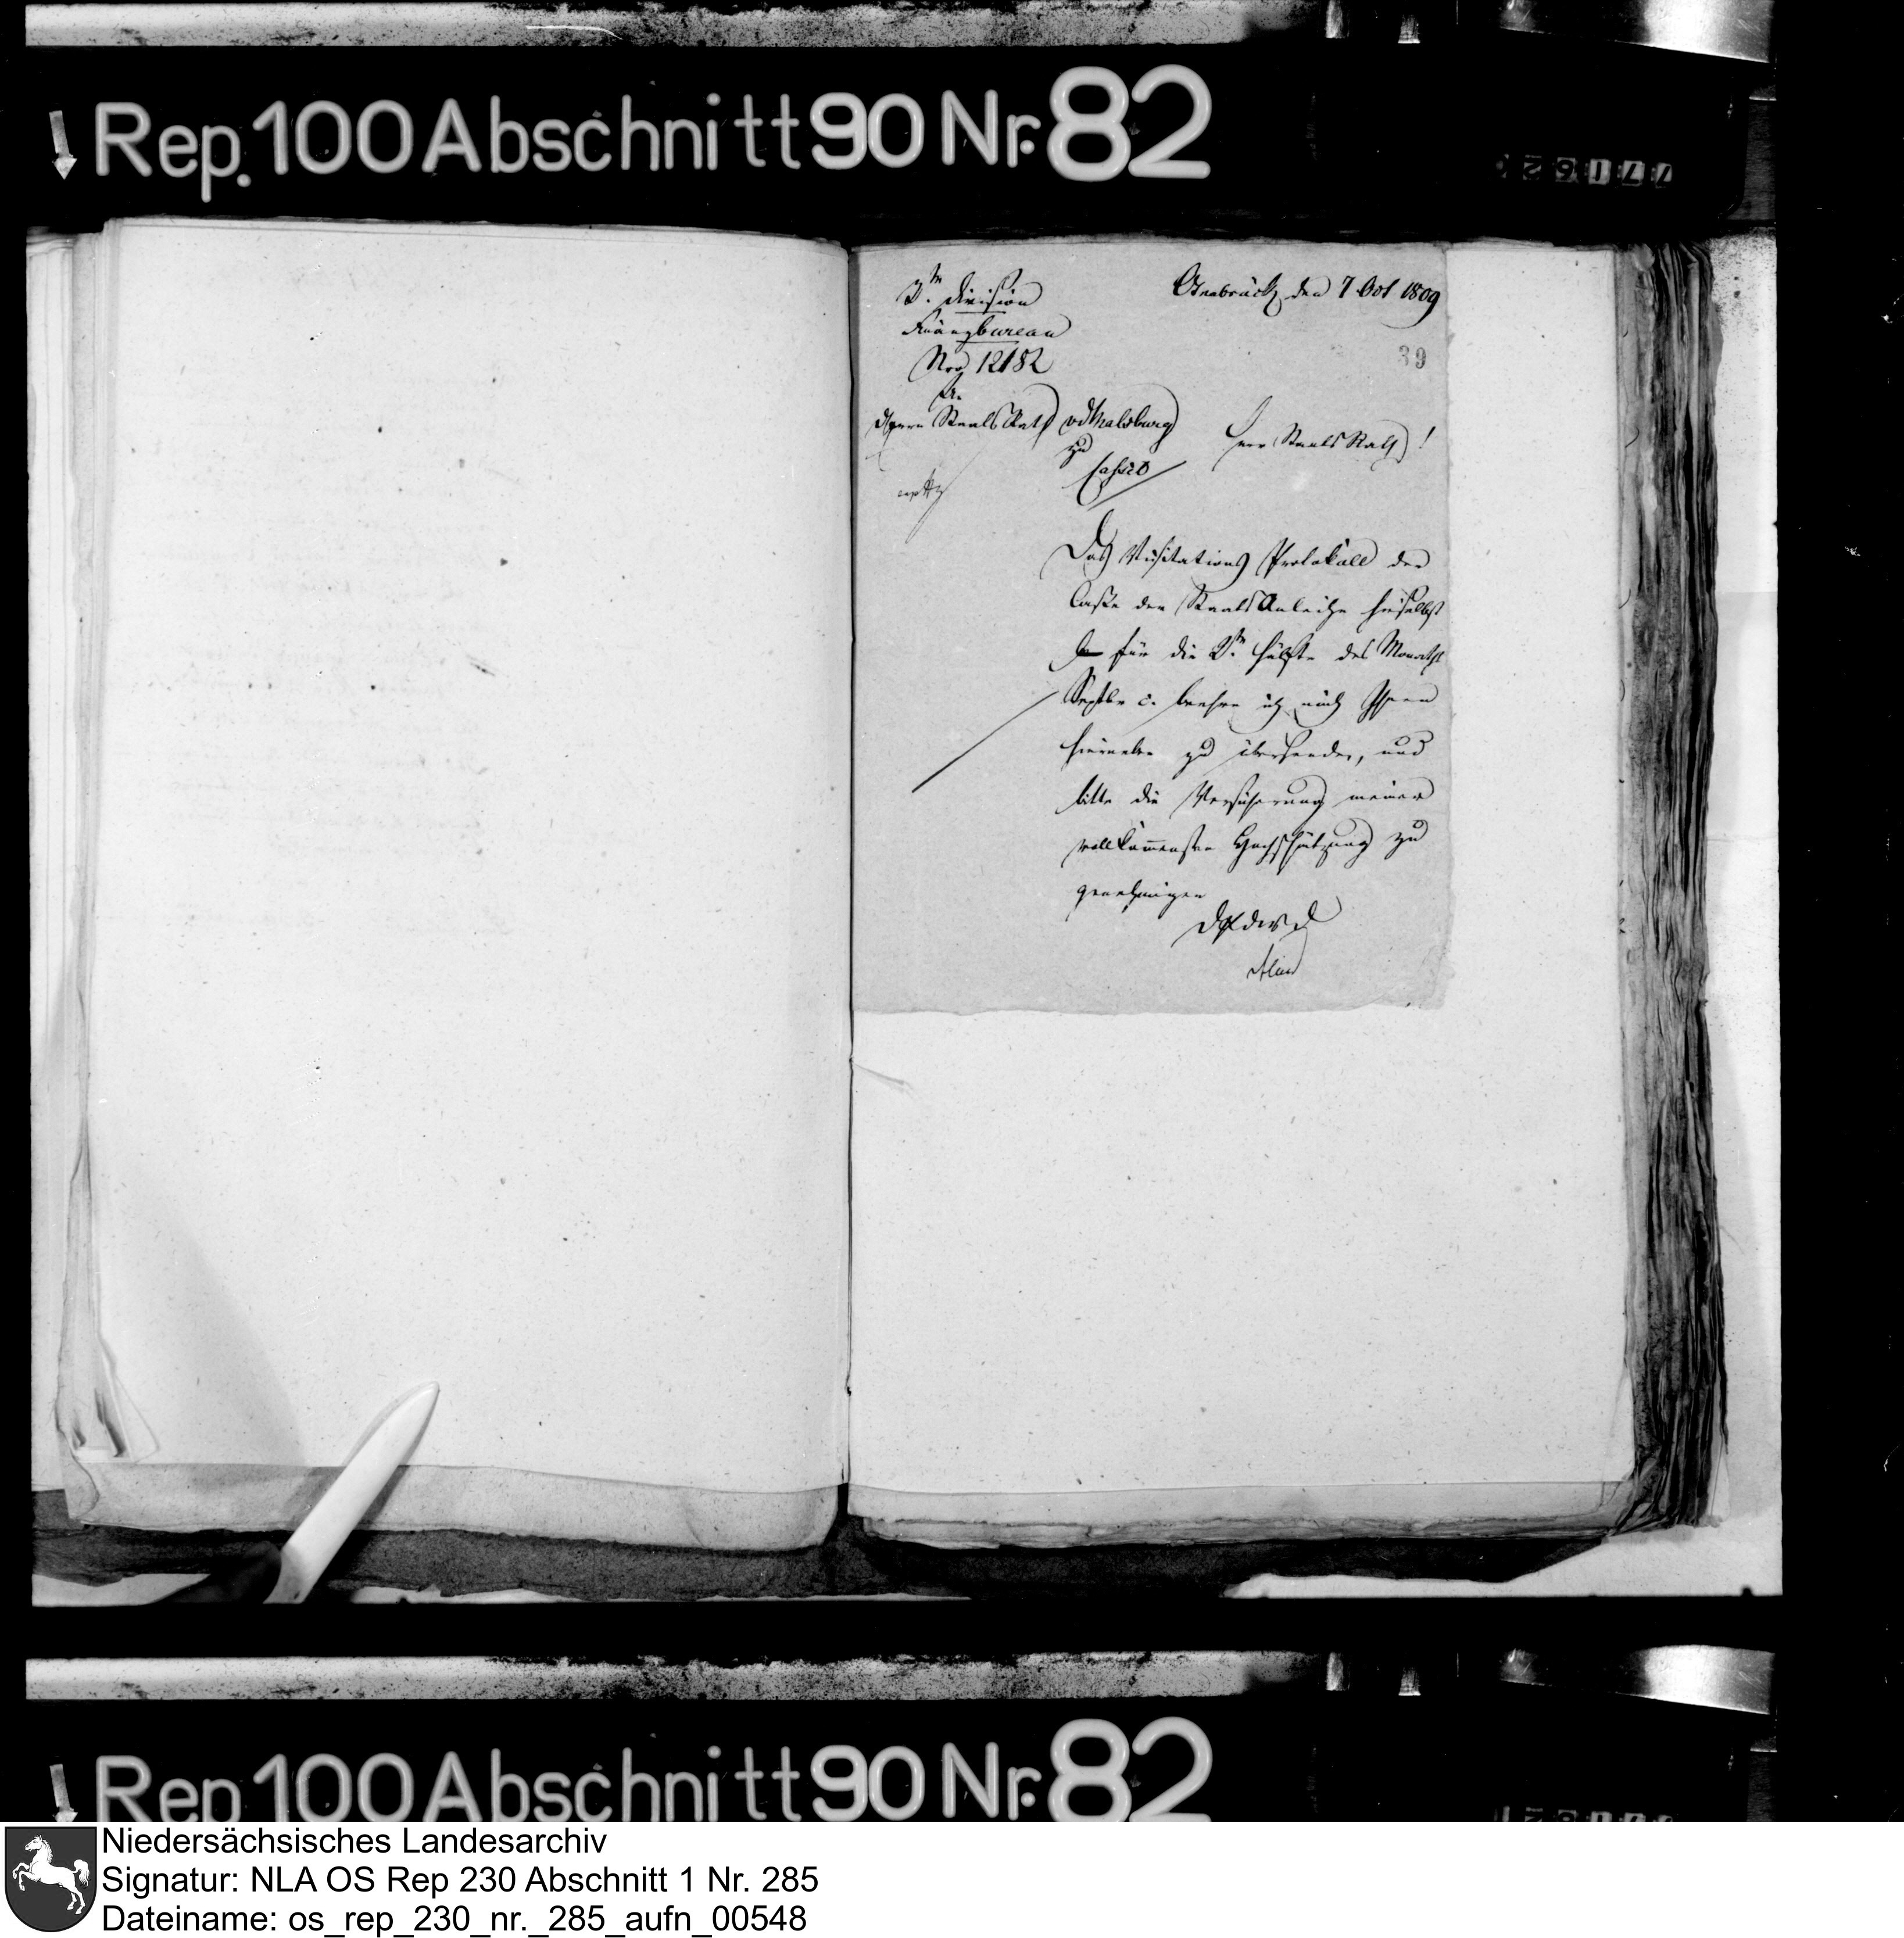 Rep. 100 Abschnitt 90 Nr. 82
2te Division
Finanzbureau
Nro 12182
Osnabrück den 7 Oct 1809
39
An
Herrn StaatsRath v d Malsburg
zu
Cassel
Herr StaatsRath!
Das Visitations Protokoll der
Casse der StaatsAnleihe hieselbst
für die 2te Hälfte des Monaths
Septbr c. beehre ich mich Ihnen
hierneben zu übersenden, und
bitte die Versicherung meiner
vollkommensten Hochschätzung zu
genehmigen
D P d W D
Rep. 100 Abschnitt 90 Nr. 82
Niedersächsisches Landesarchiv
Signatur: NLA OS Rep 230 Abschnitt 1 Nr. 285
Dateiname: os_rep_230_nr._285_aufn_00548